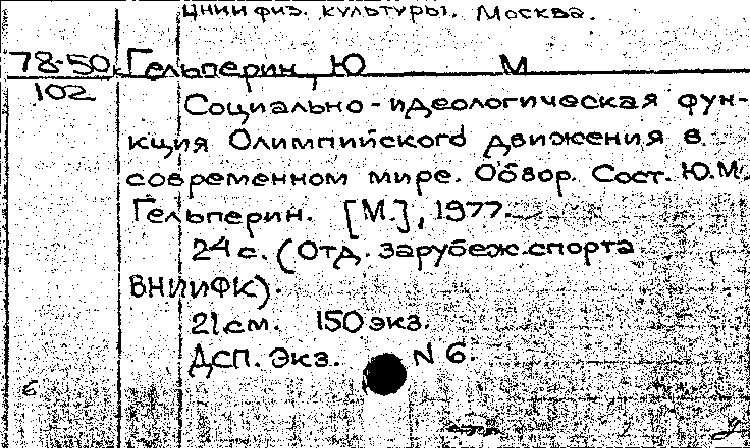 ЦНИИ физ. культуры. Москва.
78-50 Гельперин, Ю М
102
Социально-идеологическая фун-
кция Олимпийского движения в
современном мире. Обзор. Сост. Ю.М.
Гельперин. [М.], 1977.
24 с. (Отд. зарубеж. спорта
ВНИИФК).
21 см. 150 экз.
ДСП. Экз. N 6.
б